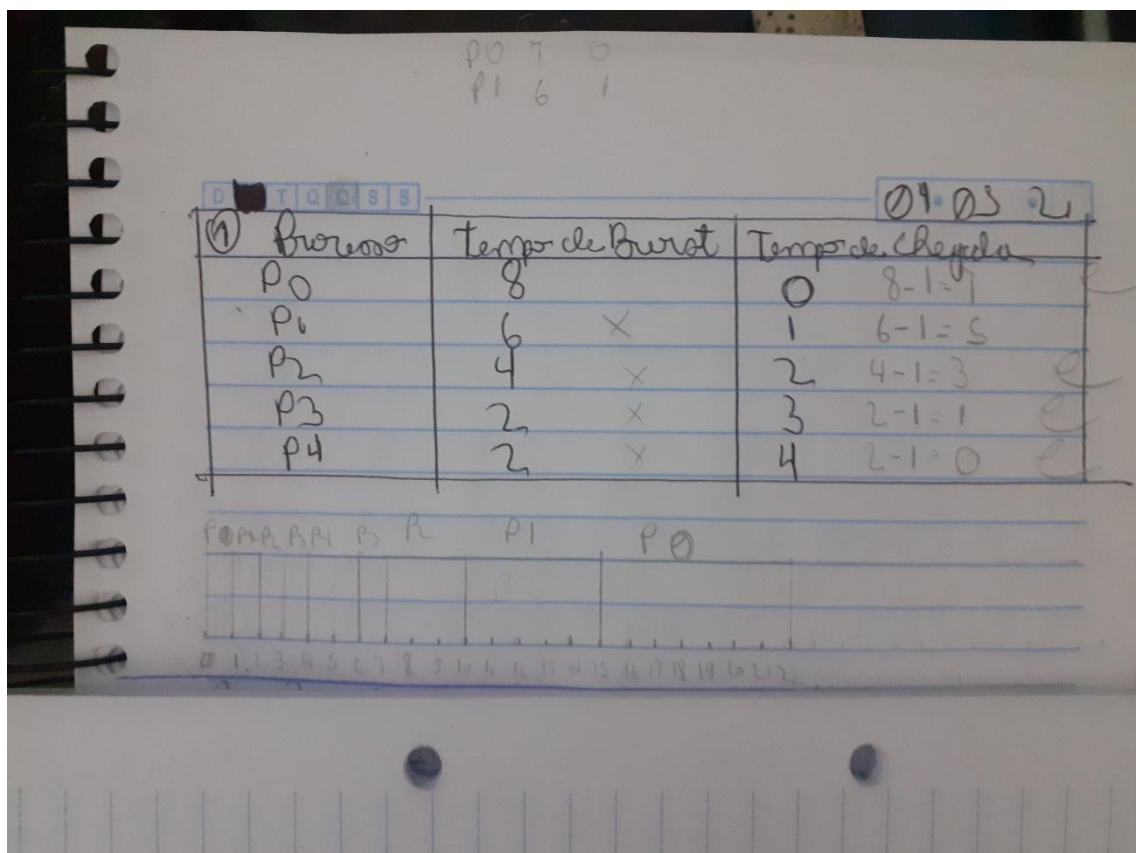 P0 7 0
P1 6 1
D T Q Q S S 04 05 2
1 Processo Tempo de Burst Tempo de chegada
P0 8 0 8-1=7
P1 6 X 1 6-1=5
P2 4 X 2 4-1=3
P3 2 X 3 2-1=1
P4 2 X 4 2-1=0
P0 P1 P2 P3 P4 P3 P2 P1 P0
0 1 2 3 4 5 6 7 8 9 10 11 12 13 14 15 16 17 18 19 20 21 22